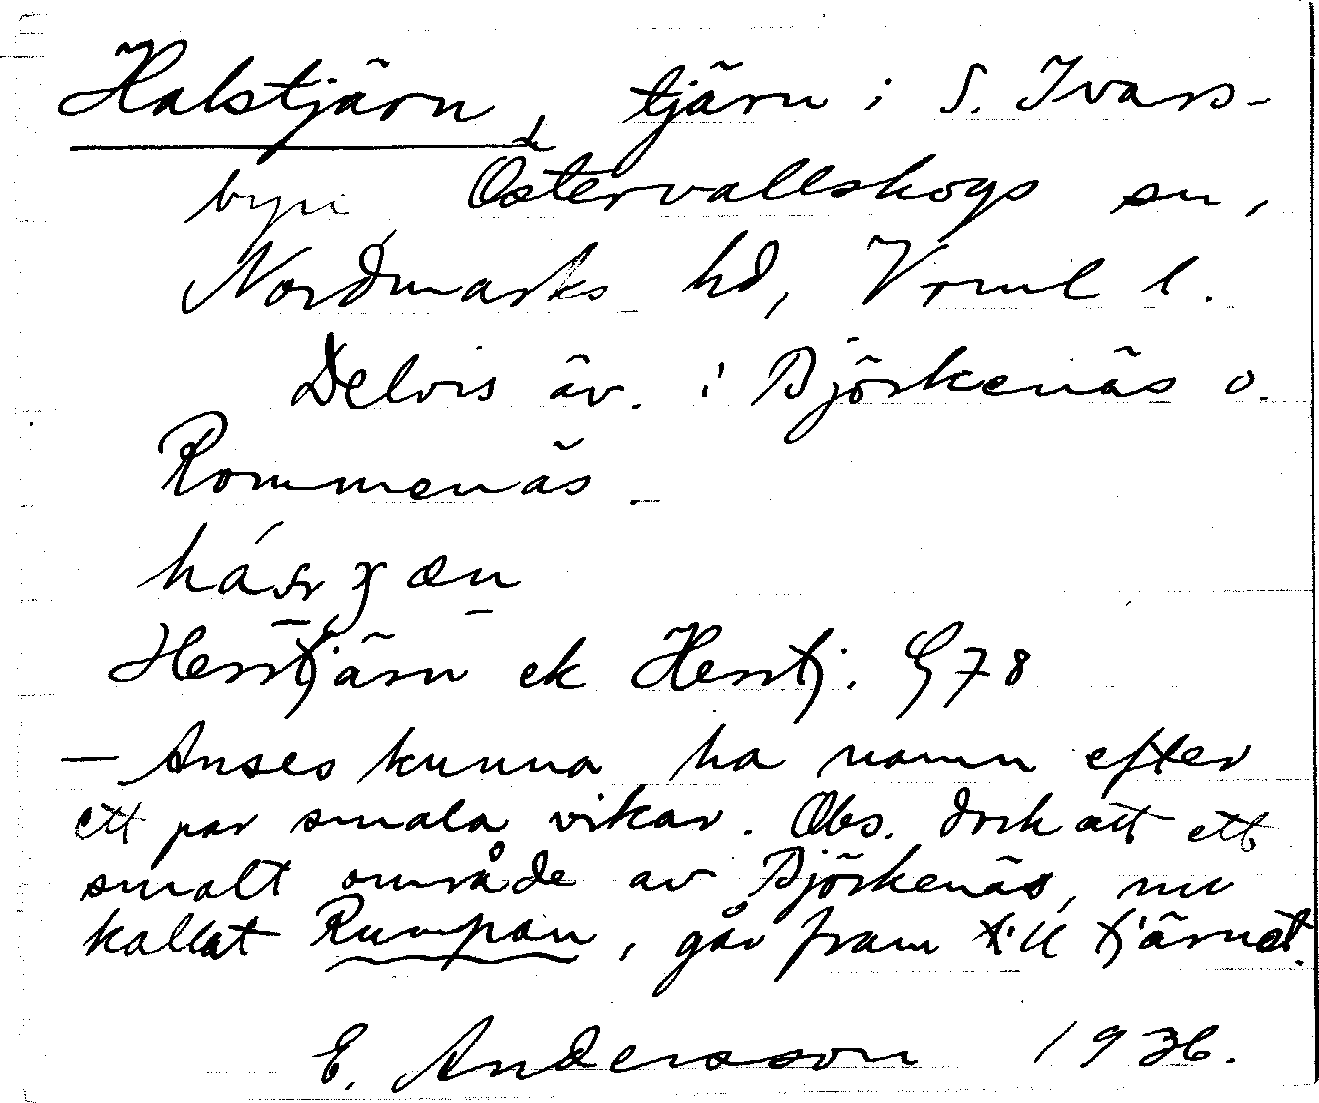 Halstjärn, tjärn i S. Ivars-
byn Östervallskogs sn,
Nordmarks hd, Vrml l.
Delvis äv. i Björkenäs o.
Rommenäs.
Herrtjärn ek Herrtj. G 78
— Anses kunna ha namn efter
ett par smala vikar. Obs. dock att ett
smalt område av Björkenäs, nu
kallat Rumpan, går fram till tjärnet.
E. Andersson 1936.